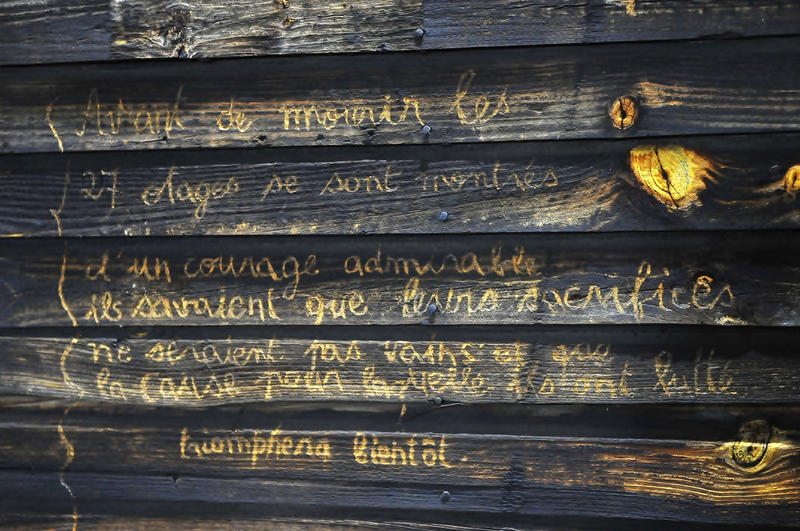 Avant de mourir les
27 otages se sont montrés
d'un courage admirable
ils savaient que leurs sacrifices
ne seraient pas vains et que
la cause pour laquelle ils ont lutté
triomphera bientôt.